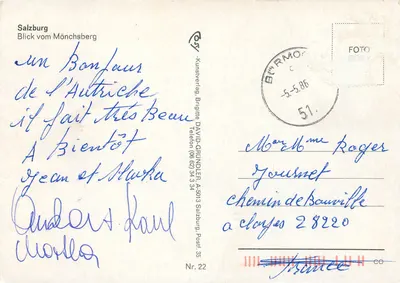 Salzburg
Blick vom Mönchsberg
un Bonjour
de l'Autriche
il fait très Beau
A Bientôt
Jean et
-Kunstverlag, Brigitte DAVID-GRÜNDLER, A-5013 Salzburg, Postf. 35
Telefon (06 62) 34 3 34
Nr. 22
FOTO
-5.-5.86
51.
Mr et Mme Roger
Journet
chemin de Bouville
a Cloyes 28220
France
CO